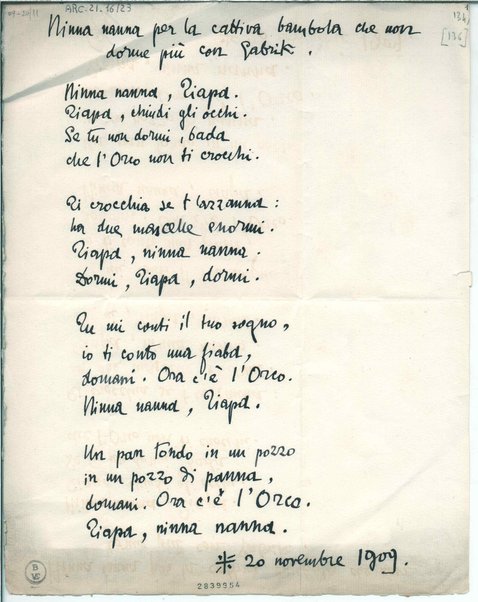 ARC.21.16/23
[136]
Ninna nanna per la cattiva bambola che non
dorme più con Gabrik.
Ninna nanna, Piapa.
Piapa, chiudi gli occhi.
Se tu non dormi, bada
che l'Orco non ti crocchi.
Ti crocchia se t'azzanna:
ha due mascelle enormi.
Piapa, ninna nanna.
Dormi, Piapa, dormi.
Tu mi conti il tuo sogno,
io ti conto una fiaba,
domani. Ora c'è l'Orco.
Ninna nanna, Piapa.
Un pan tondo in un pozzo
in un pozzo di panna,
domani. Ora c'è l'Orco.
Piapa, ninna nanna.
20 novembre 1909.
2839954